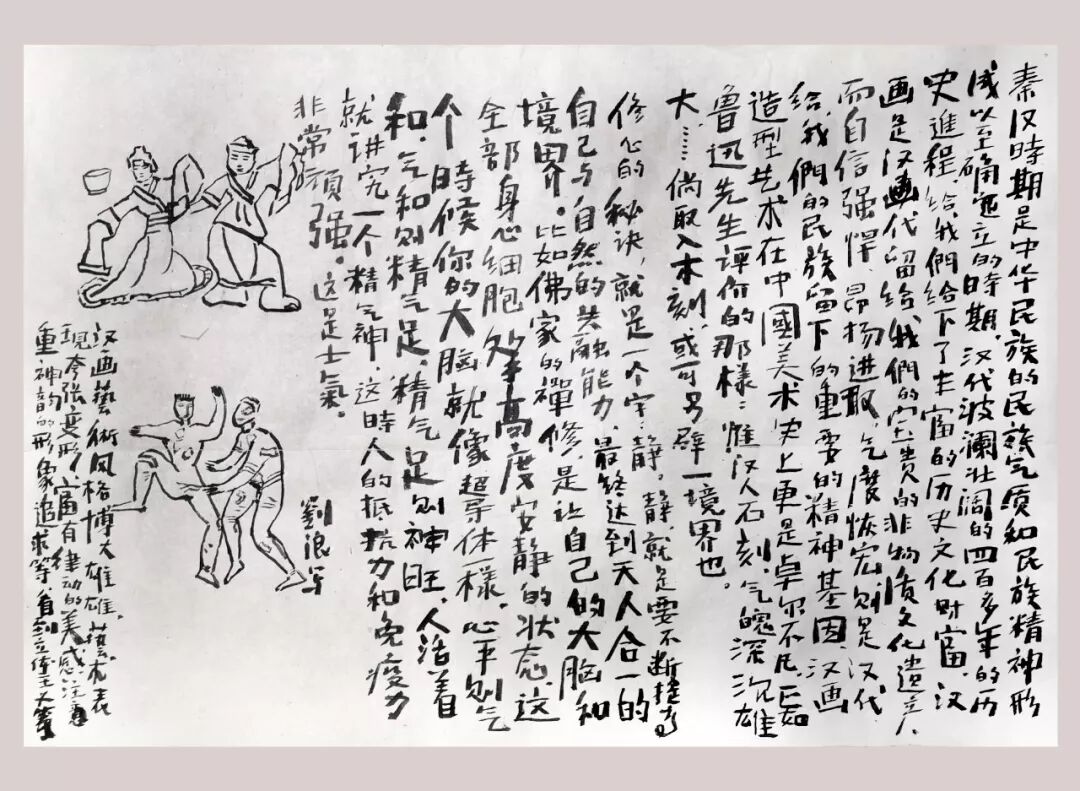 秦汉時期是中华民族的民族气质和民族精神形
成以至确立的時期,汉代波澜壮阔的四百多年的历
史進程,给我們给下了丰富的历史文化财富,汉
画是汉代留给我們的宝贵的非物质文化遗产,
而自信强悍,昂扬进取,气度恢宏则是汉代
给我們的民族留下的重要的精神基因,汉画
造型艺术在中國美术史上更是卓尔不凡,正如
鲁迅先生評价的那樣:惟汉人石刻,气魄深沉雄
大……倘取入木刻,或可另辟一境界也。
修心的秘诀,就是一个字,静,静,就是要不断提高
自己与自然的共融能力,最终达到天人合一的
境界。比如佛家的禪修,是让自己的大脑和
全部身心细胞处于高度安静的状态,这
个時候你的大脑就像超导体一樣,心平则气
和,气和则精气足,精气足则神旺,人活着
就讲究一个精气神,这時人的抵抗力和免疫力
非常顽强。这是士氣。
劉浪写
汉画藝術风格博大雄雄,藝术表
現夸张变形,富有律动的美感注重
重神韵的形象追求等